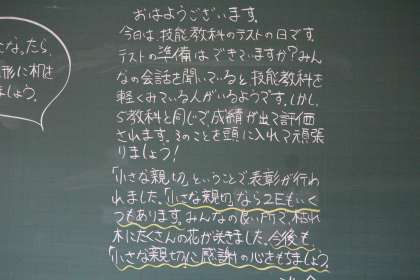 おはようございます。
今日は、技能教科のテストの日です。
テストの準備はできていますか?みん
なの会話を聞いていると、技能教科を
軽くみている人がいるようです。しかし、
5教科と同じで成績が出て評価
されます。そのことを頭に入れて頑張
りましょう!
「小さな親切」ということで表彰が行わ
れました。「小さな親切」なら2Eもいく
つもあります。みんなの良い所で、枯れ
木にたくさんの花が咲きました。今後も
「小さな親切」に感謝の心をもちましょう。
さなったら、
形に机を
ましょう。